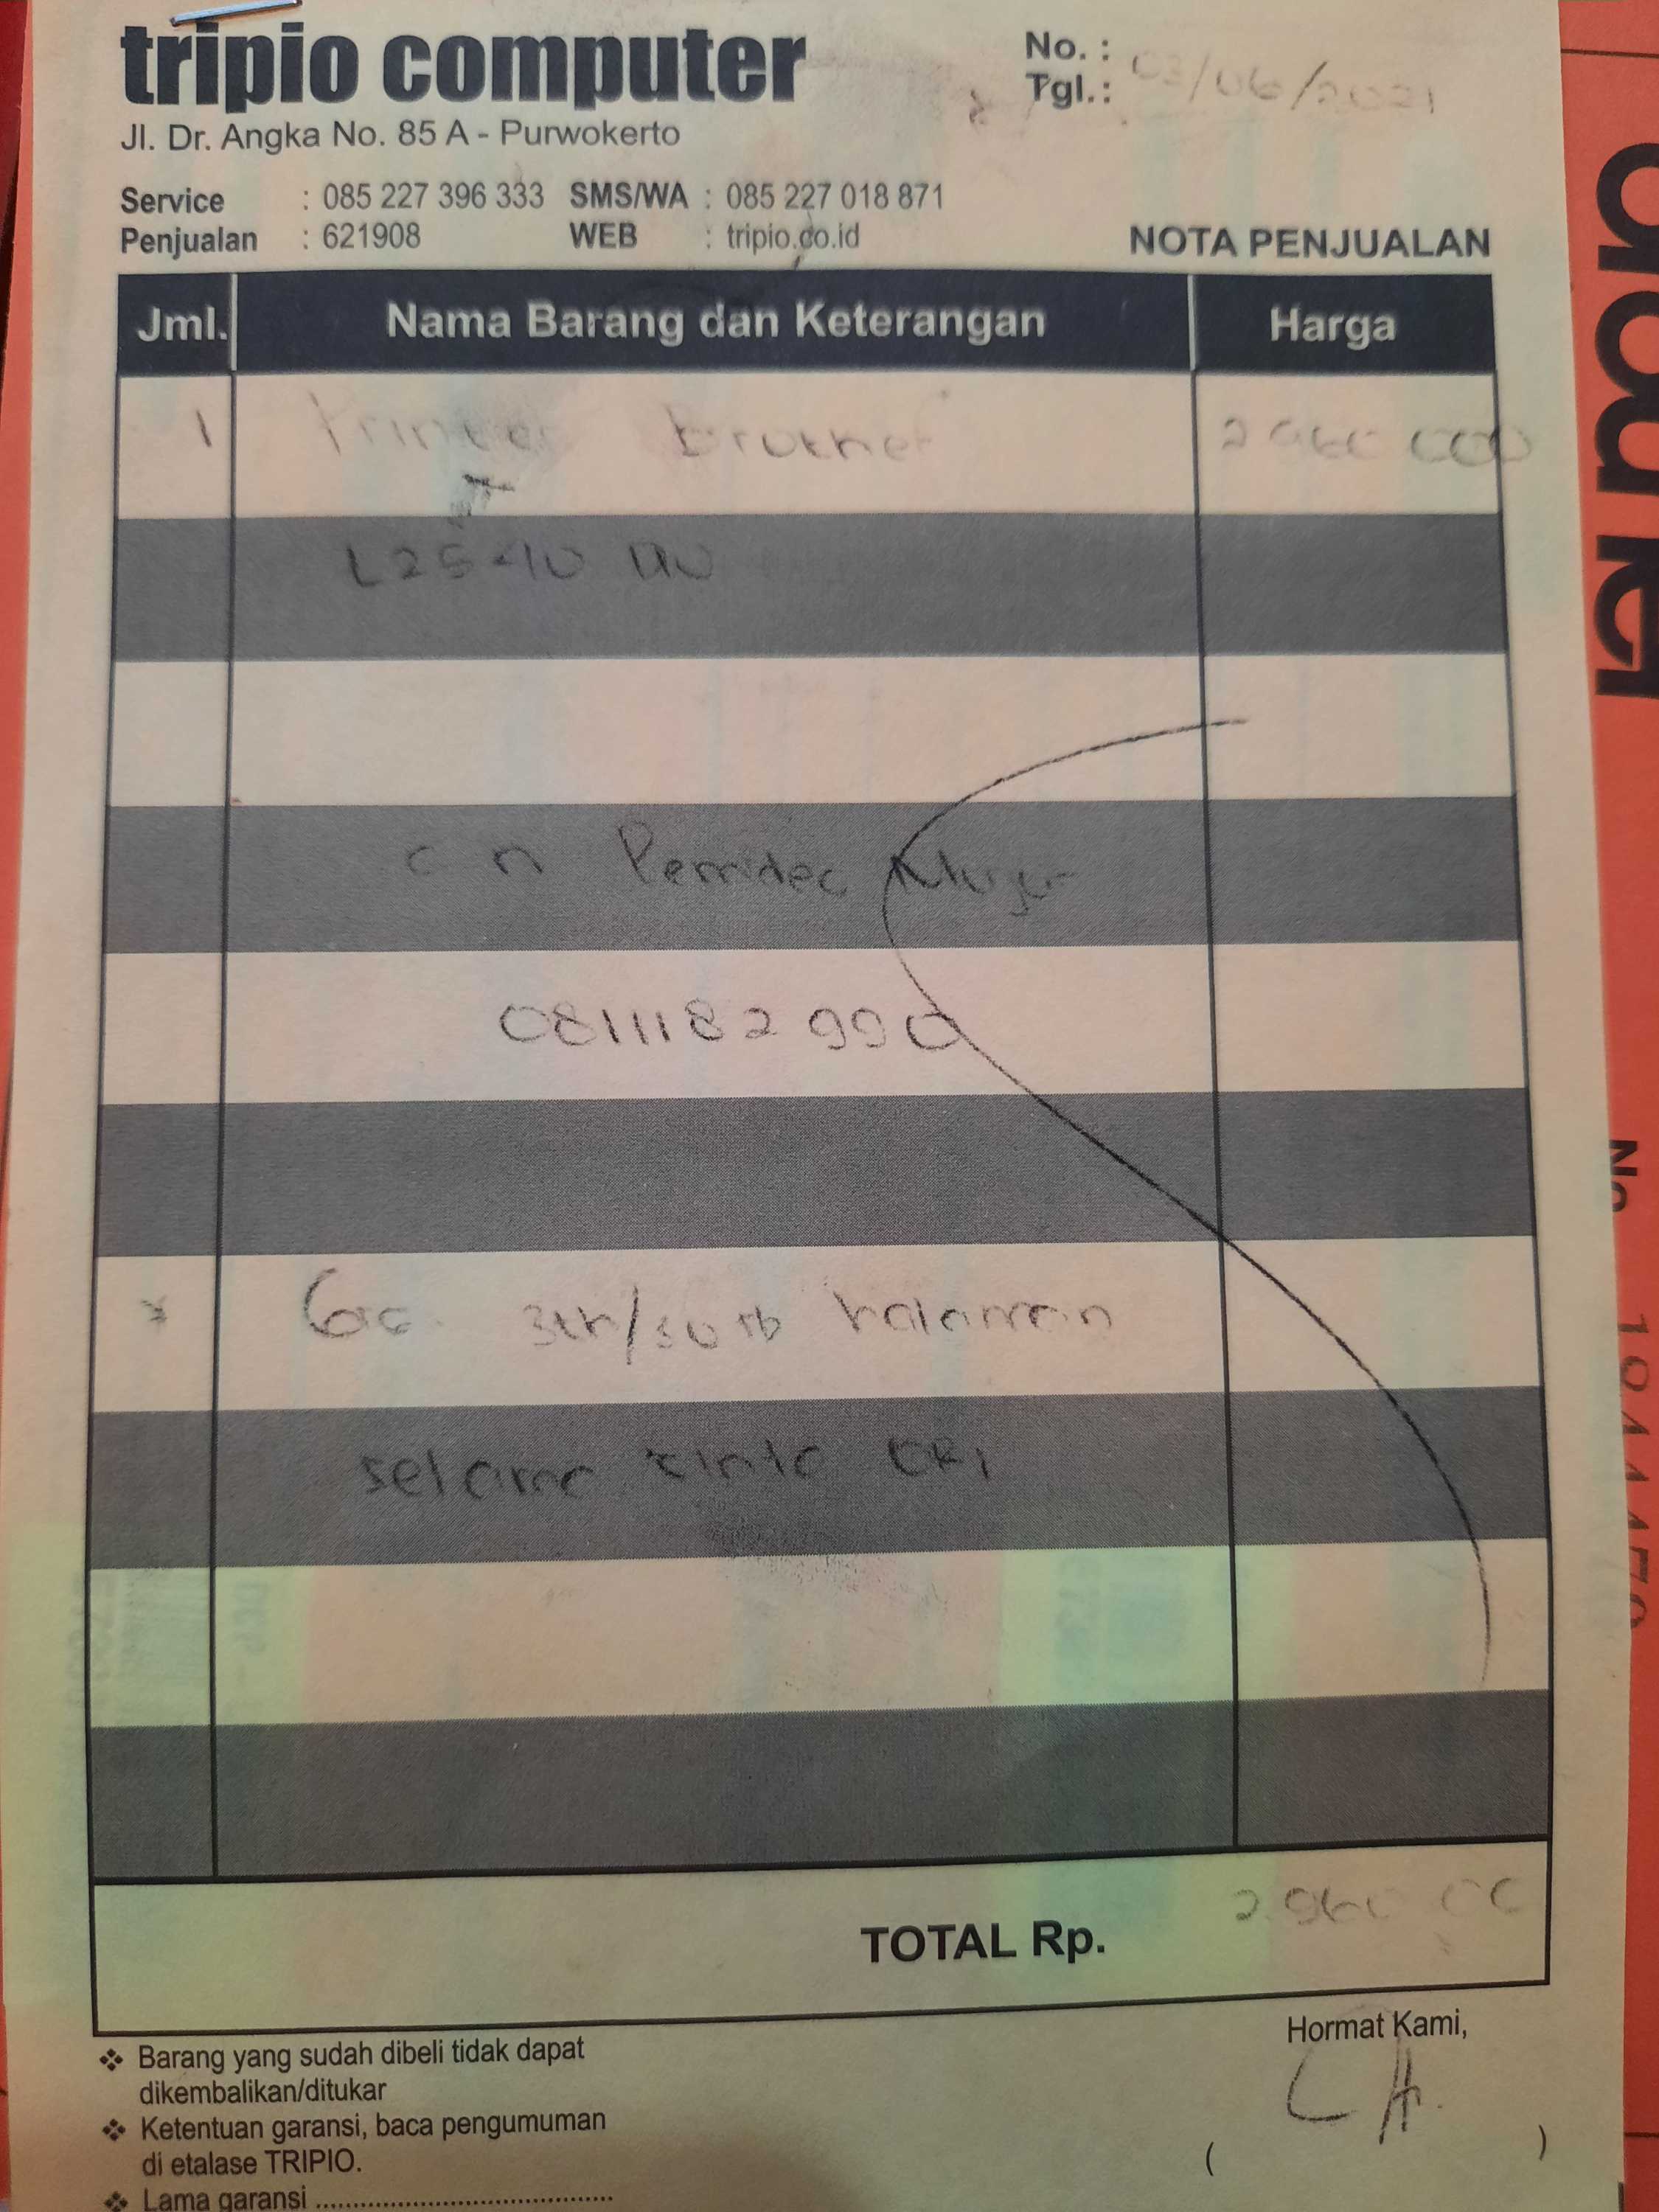 tripio computer
No. :
Tgl. : 03/06/2021
Jl. Dr. Angka No. 85 A - Purwokerto
Service : 085 227 396 333 SMS/WA : 085 227 018 871
Penjualan : 621908 WEB : tripio.co.id
NOTA PENJUALAN
Jml. Nama Barang dan Keterangan Harga
1 Printer brother 2 960 000
L2540
a n
0811182990
* Ga. 3th/30 rb halaman
selama tinta ORI
2.960 00
TOTAL Rp.
Hormat Kami,
Barang yang sudah dibeli tidak dapat
dikembalikan/ditukar
Ketentuan garansi, baca pengumuman
di etalase TRIPIO.
( )
Lama garansi ..........................................